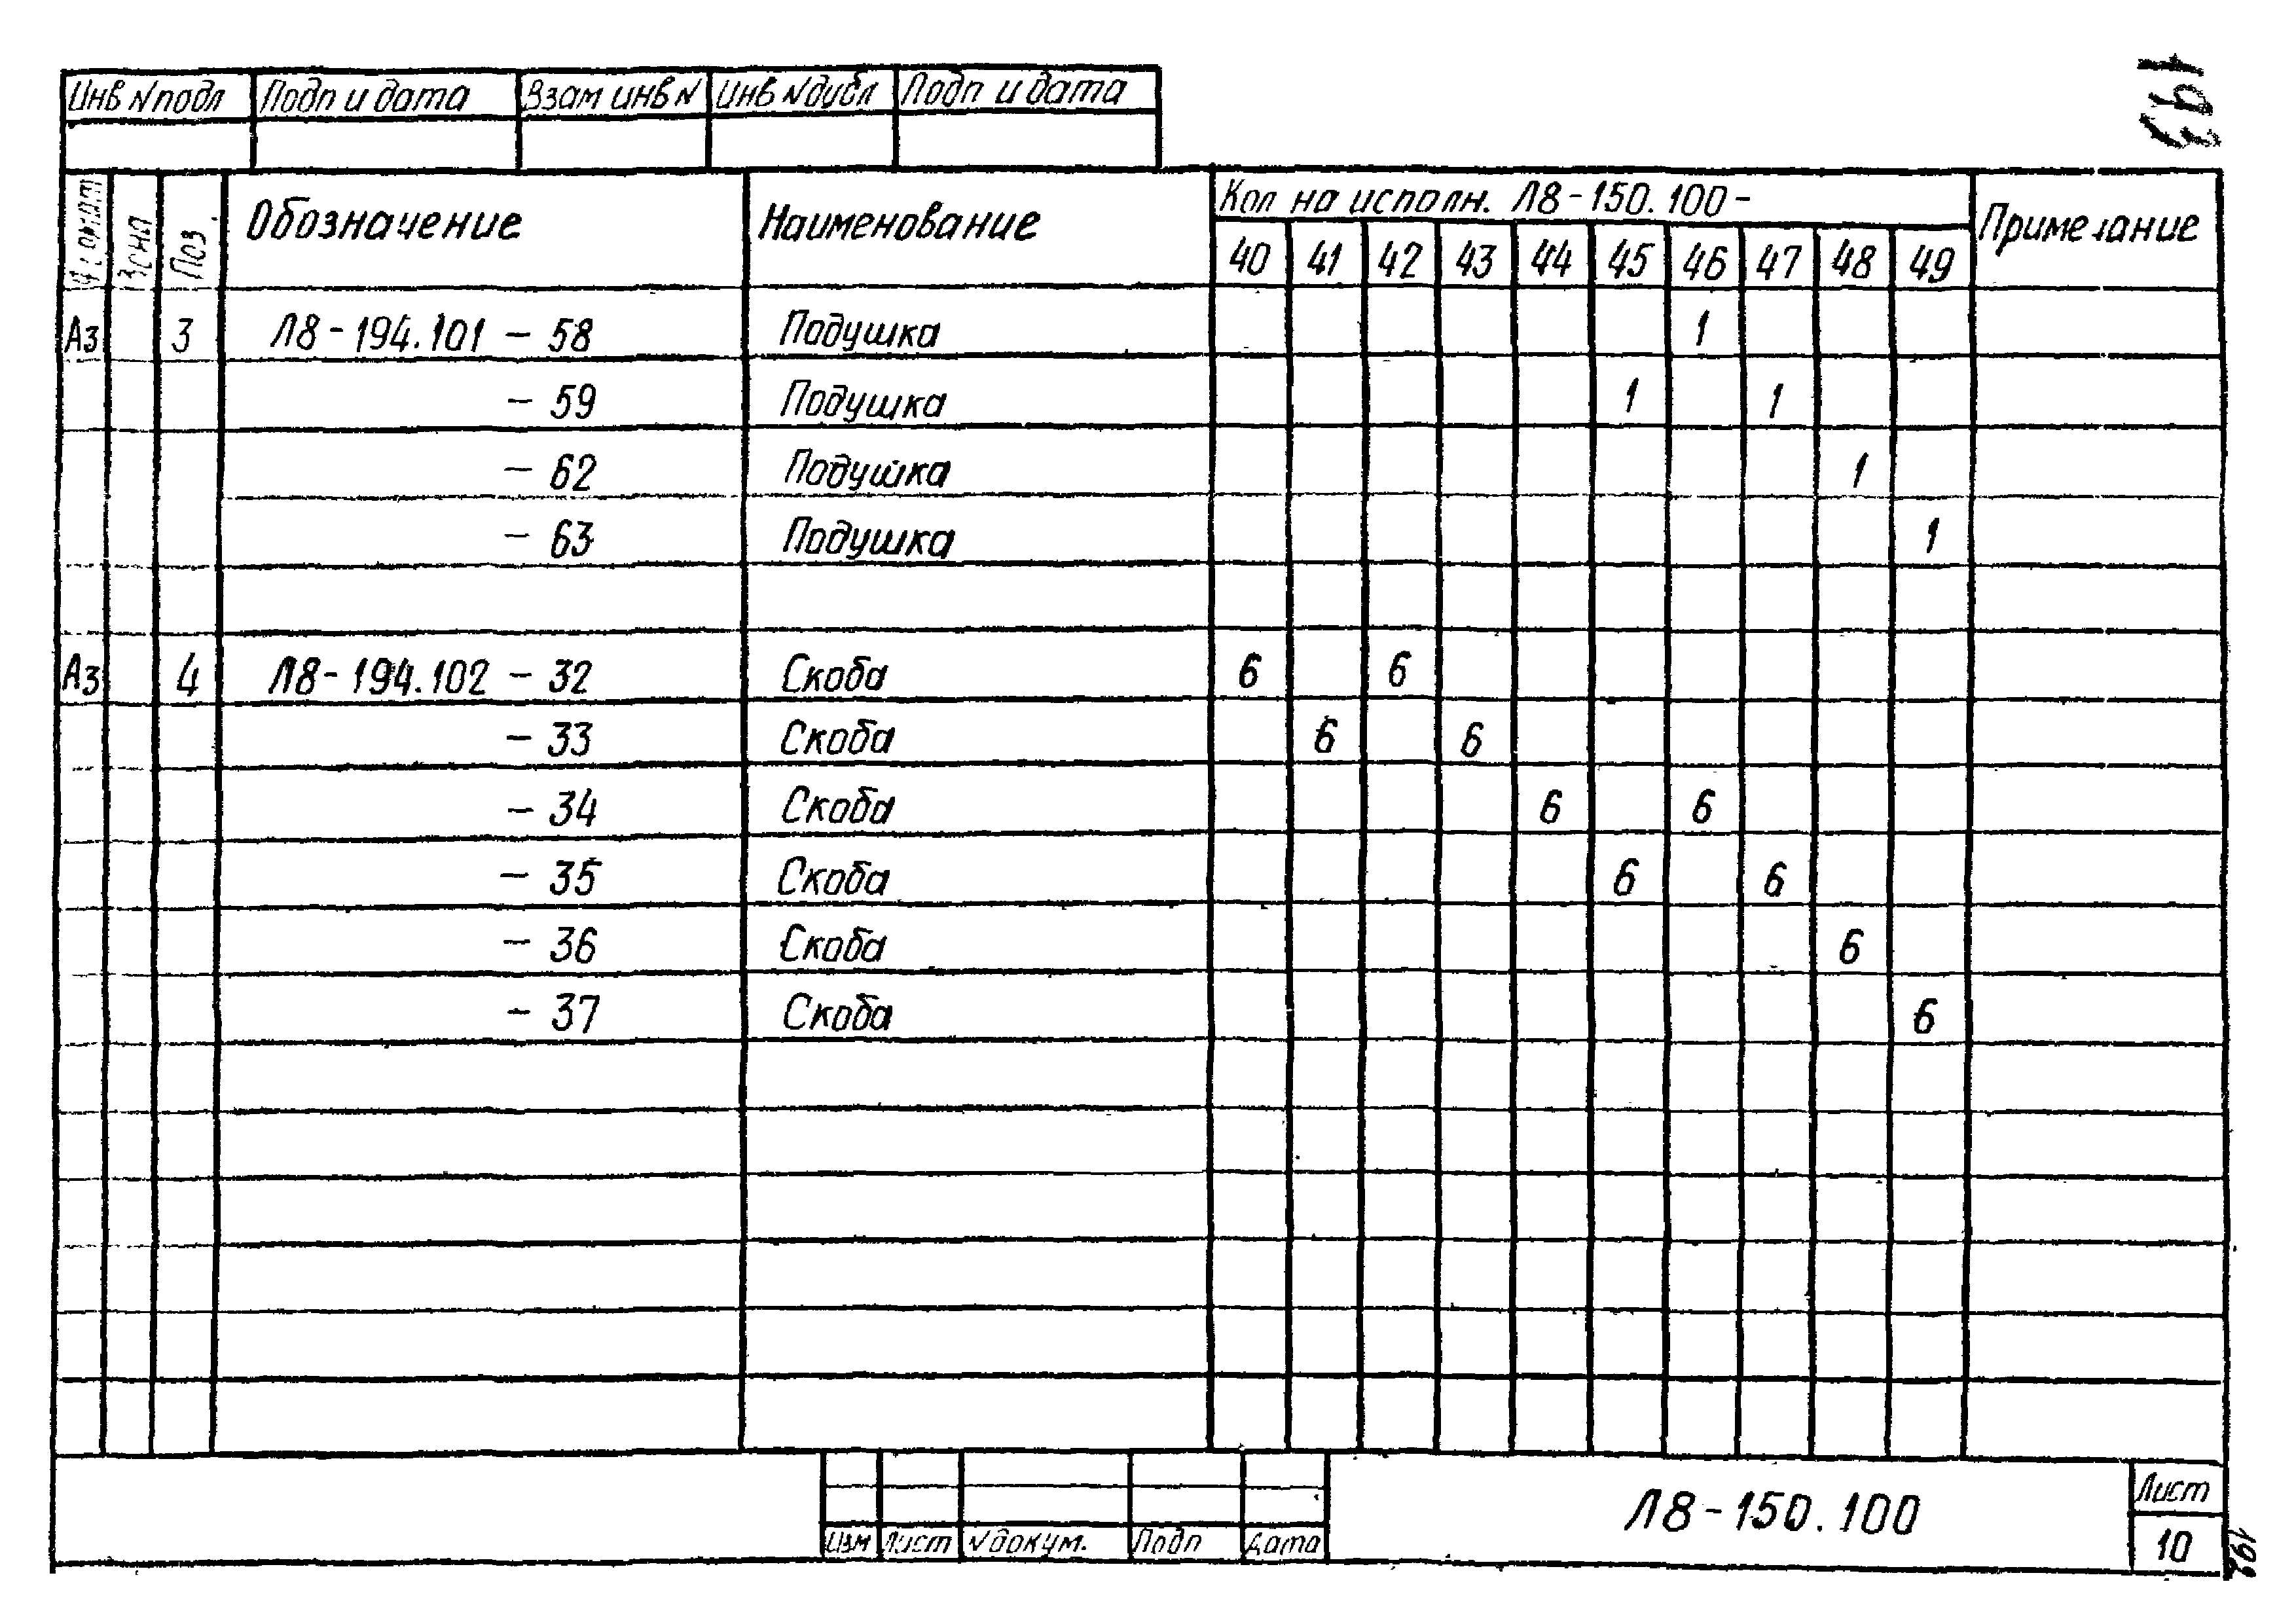 193
Инв N подл Подп и дата Взам инв N Инв N дубл Подп и дата
Формат Зона Поз. Обозначение Наименование Кол на исполн. Л8-150.100- Примечание
40 41 42 43 44 45 46 47 48 49
А3 3 Л8-194.101 - 58 Подушка 1
- 59 Подушка 1 1
- 62 Подушка 1
- 63 Подушка 1
А3 4 Л8-194.102 - 32 Скоба 6 6
- 33 Скоба 6 6
- 34 Скоба 6 6
- 35 Скоба 6 6
- 36 Скоба 6
- 37 Скоба 6
Изм Лист N докум. Подп Дата
Л8-150.100
Лист
10